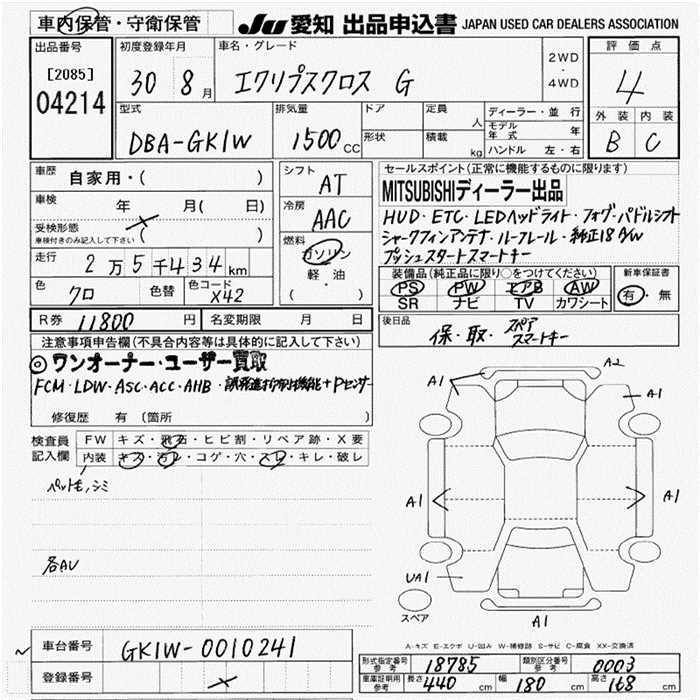 車内保管・守衛保管 JU 愛知 出品申込書 JAPAN USED CAR DEALERS ASSOCIATION
出品番号 初度登録年月 車名・グレード 2WD・4WD 評価点
[2085] 04214
30 8月 エクリプスクロス G 4
型式 排気量 ドア 定員 人 ディーラー・並行 外装 内装
DBA-GK1W 1500 CC 形状 積載 kg モデル年式 年 B C
ハンドル 左・右
車歴 自家用・( ) シフト AT セールスポイント(正常に機能するものに限ります)
車検 年 月( 日) 冷房 AAC MITSUBISHIディーラー出品
受検形態 ( ) HUD・ETC・LEDヘッドライト・フォグ・パドルシフト
車検付きのみ記入して下さい 燃料 ガソリン シャークフィンアンテナ・ルーフレール・純正18A/W
走行 2万5千434km 軽・油 プッシュスタートスマートキー
( ) 装備品(純正品に限り○をつけてください) 新車保証書
色 クロ 色替 色コード X42 PS PW エアB AW 有・無
SR ナビ TV カワシート
R券 11800 円 名変期限 月 日 後日品 保・取・スペア スマートキー
注意事項申告欄(不具合内容等は具体的に記入して下さい)
◎ワンオーナー・ユーザー買取
FCM・LDW・ASC・ACC・AHB・誤発進抑制機能+Pセンサー
修復歴 有 (箇所 )
検査員記入欄 FW キズ・飛石・ヒビ割・リペア跡・X要
内装 キズ・汚レ・コゲ・穴・スレ・キレ・破レ
ペットモ,シミ
各AU
A1 A2 A1
A1 A1
UA1 A1
スペア
A-キズ E-エクボ U-凹み W-補修跡 S-サビ C-腐食 XX-交換済
車台番号 GK1W-0010241
登録番号
形式指定番号 参考 18785 類別区分番号 参考 0003
車庫証明用 参考 長さ 440 cm 幅 180 cm 高さ 168 cm